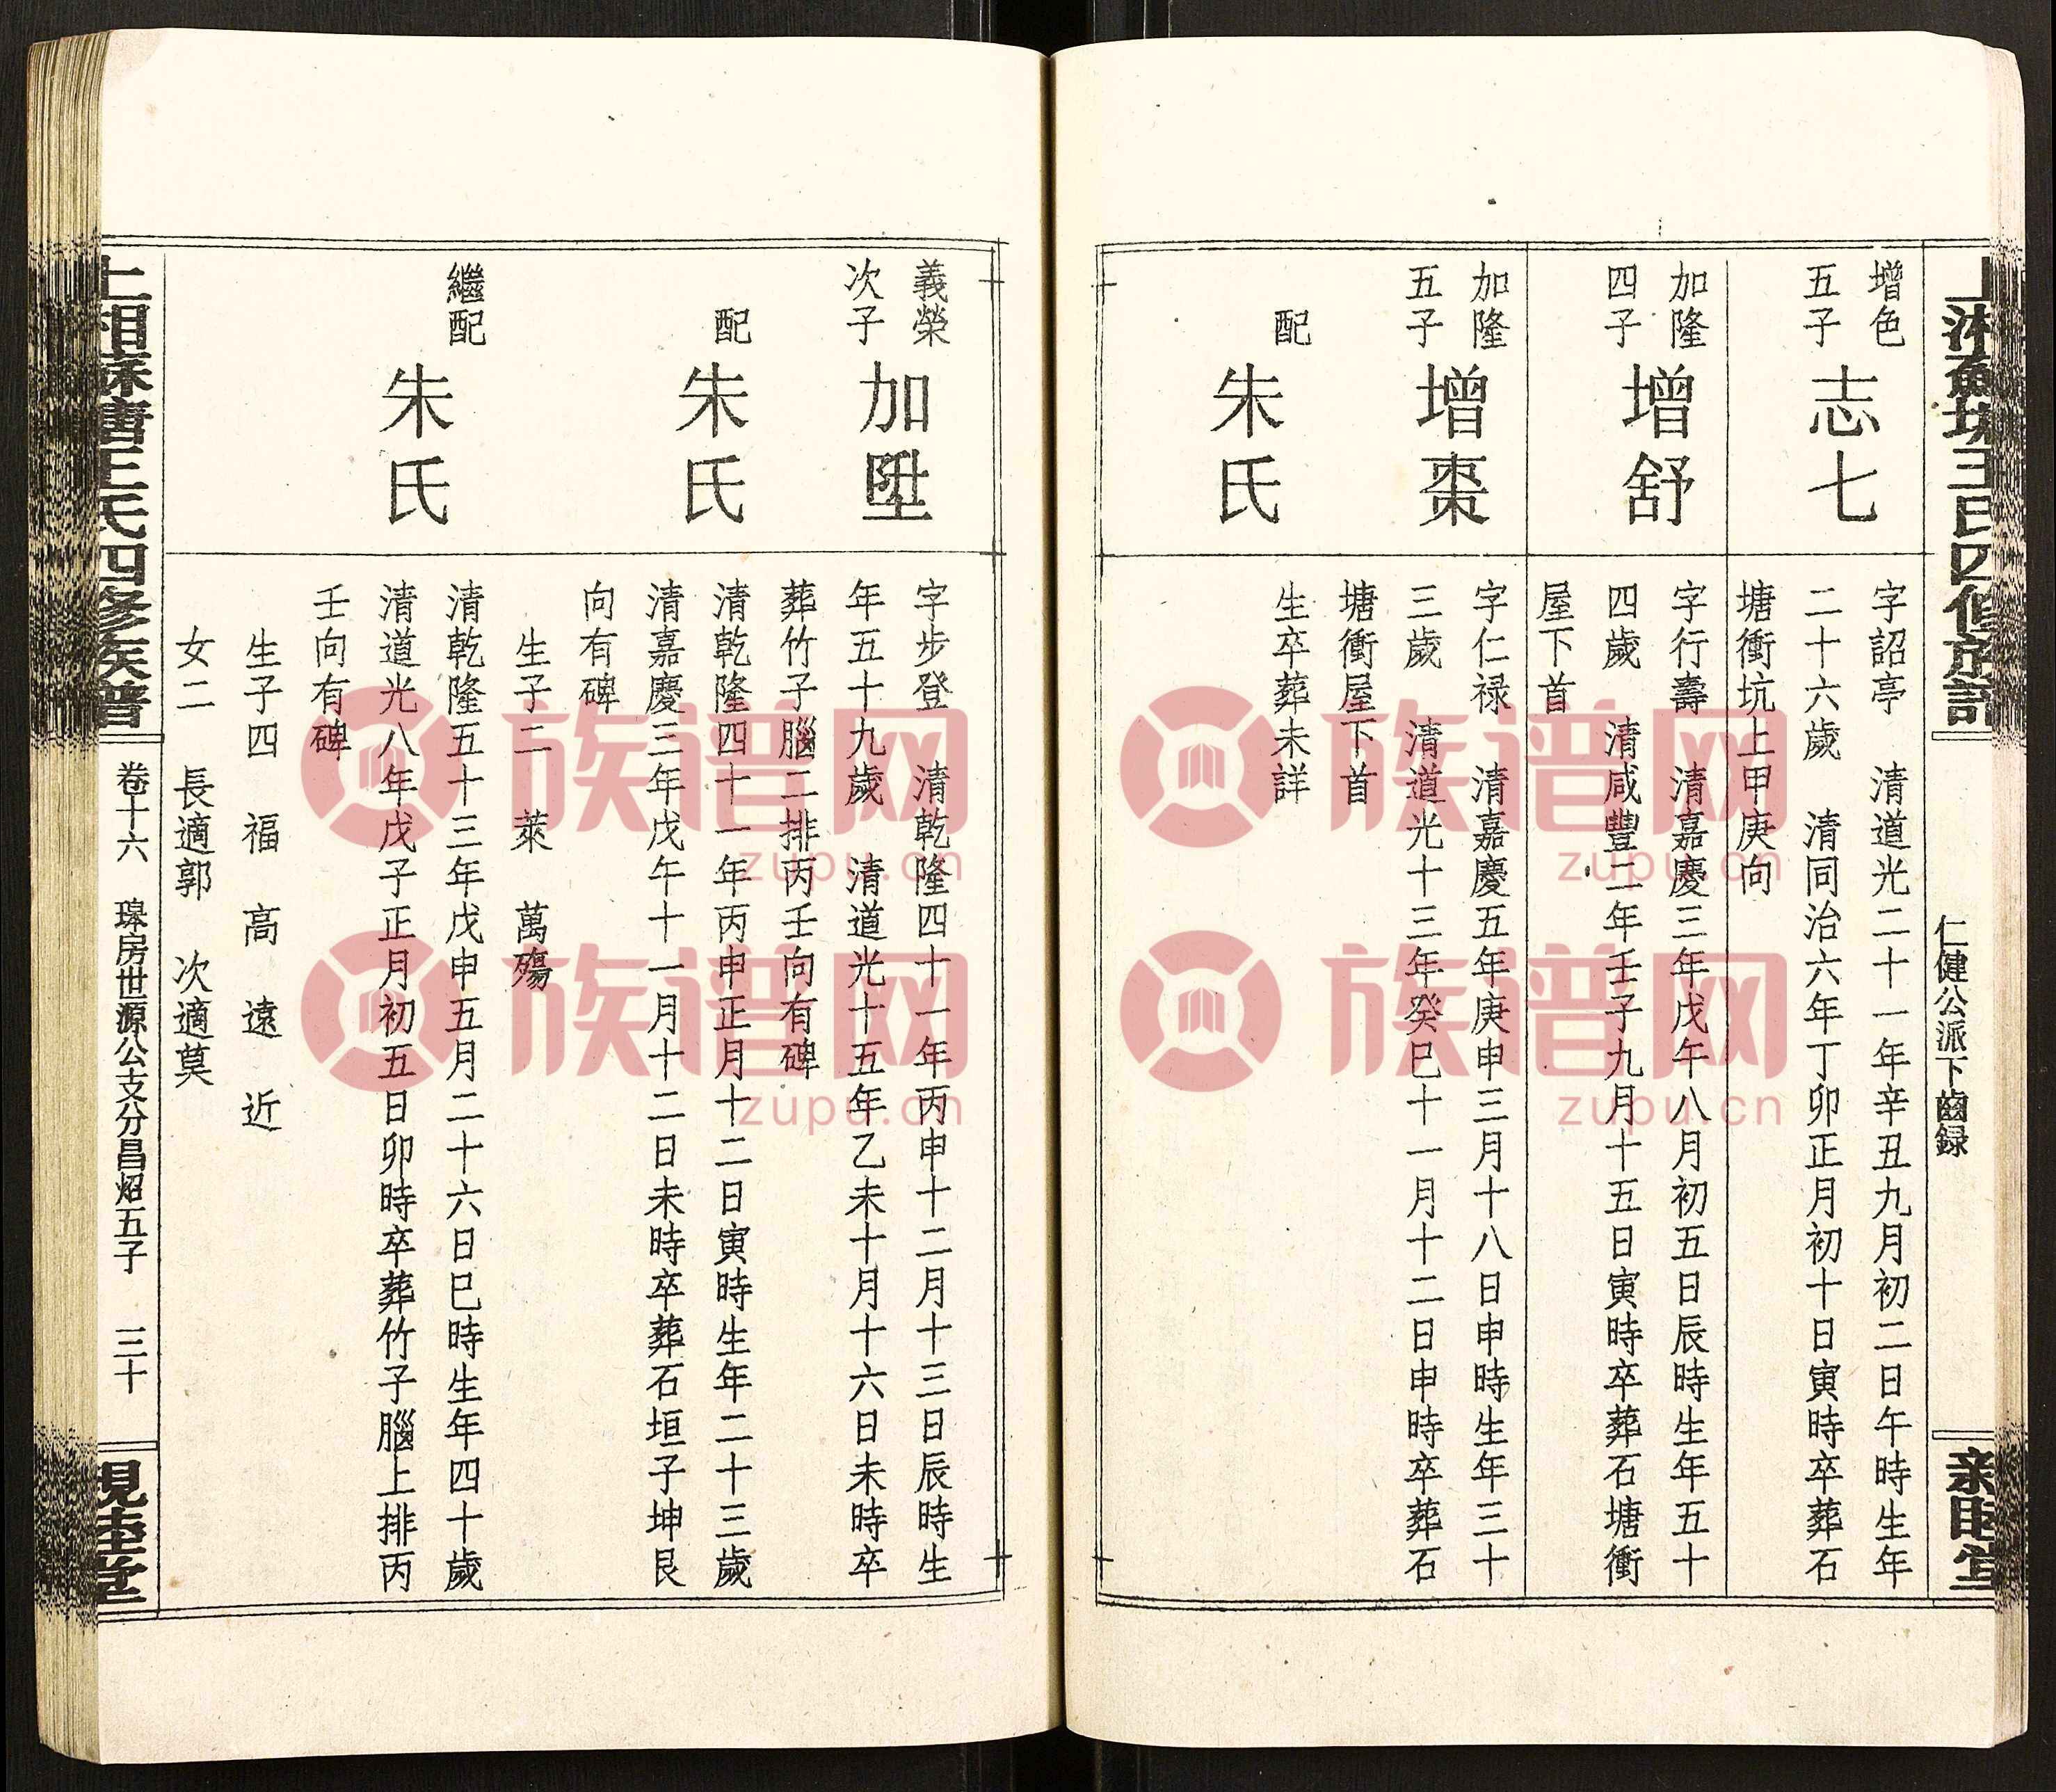 上湘蘇塘王氏四修族譜
仁健公派下齒録
親睦堂
增色
五子
志七
字詔亭 清道光二十一年辛丑九月初二日午時生年
二十六歲 清同治六年丁卯正月初十日寅時卒葬石
塘衝坑上甲庚向
加隆
四子
增舒
字行壽 清嘉慶三年戊午八月初五日辰時生年五十
四歲 清咸豐二年壬子九月十五日寅時卒葬石塘衝
屋下首
加隆
五子
增棗
字仁禄 清嘉慶五年庚申三月十八日申時生年三十
三歲 清道光十三年癸巳十一月十二日申時卒葬石
塘衝屋下首
配
朱氏
生卒葬未詳
義榮
次子
加陞
字步登 清乾隆四十一年丙申十二月十三日辰時生
年五十九歲 清道光十五年乙未十月十六日未時卒
葬竹子腦二排丙壬向有碑
配
朱氏
清乾隆四十一年丙申正月十二日寅時生年二十三歲
清嘉慶三年戊午十一月十二日未時卒葬石垣子坤艮
向有碑
生子二 萊 萬殤
繼配
朱氏
清乾隆五十三年戊申五月二十六日巳時生年四十歲
清道光八年戊子正月初五日卯時卒葬竹子腦上排丙
壬向有碑
生子四 福 高 遠 近
女二 長適郭 次適莫
上湘蘇塘王氏四修族譜
卷十六 房世源公支分昌炤五子 三十
親睦堂
族谱网
zupu.cn
族谱网
zupu.cn
族谱网
zupu.cn
族谱网
zupu.cn